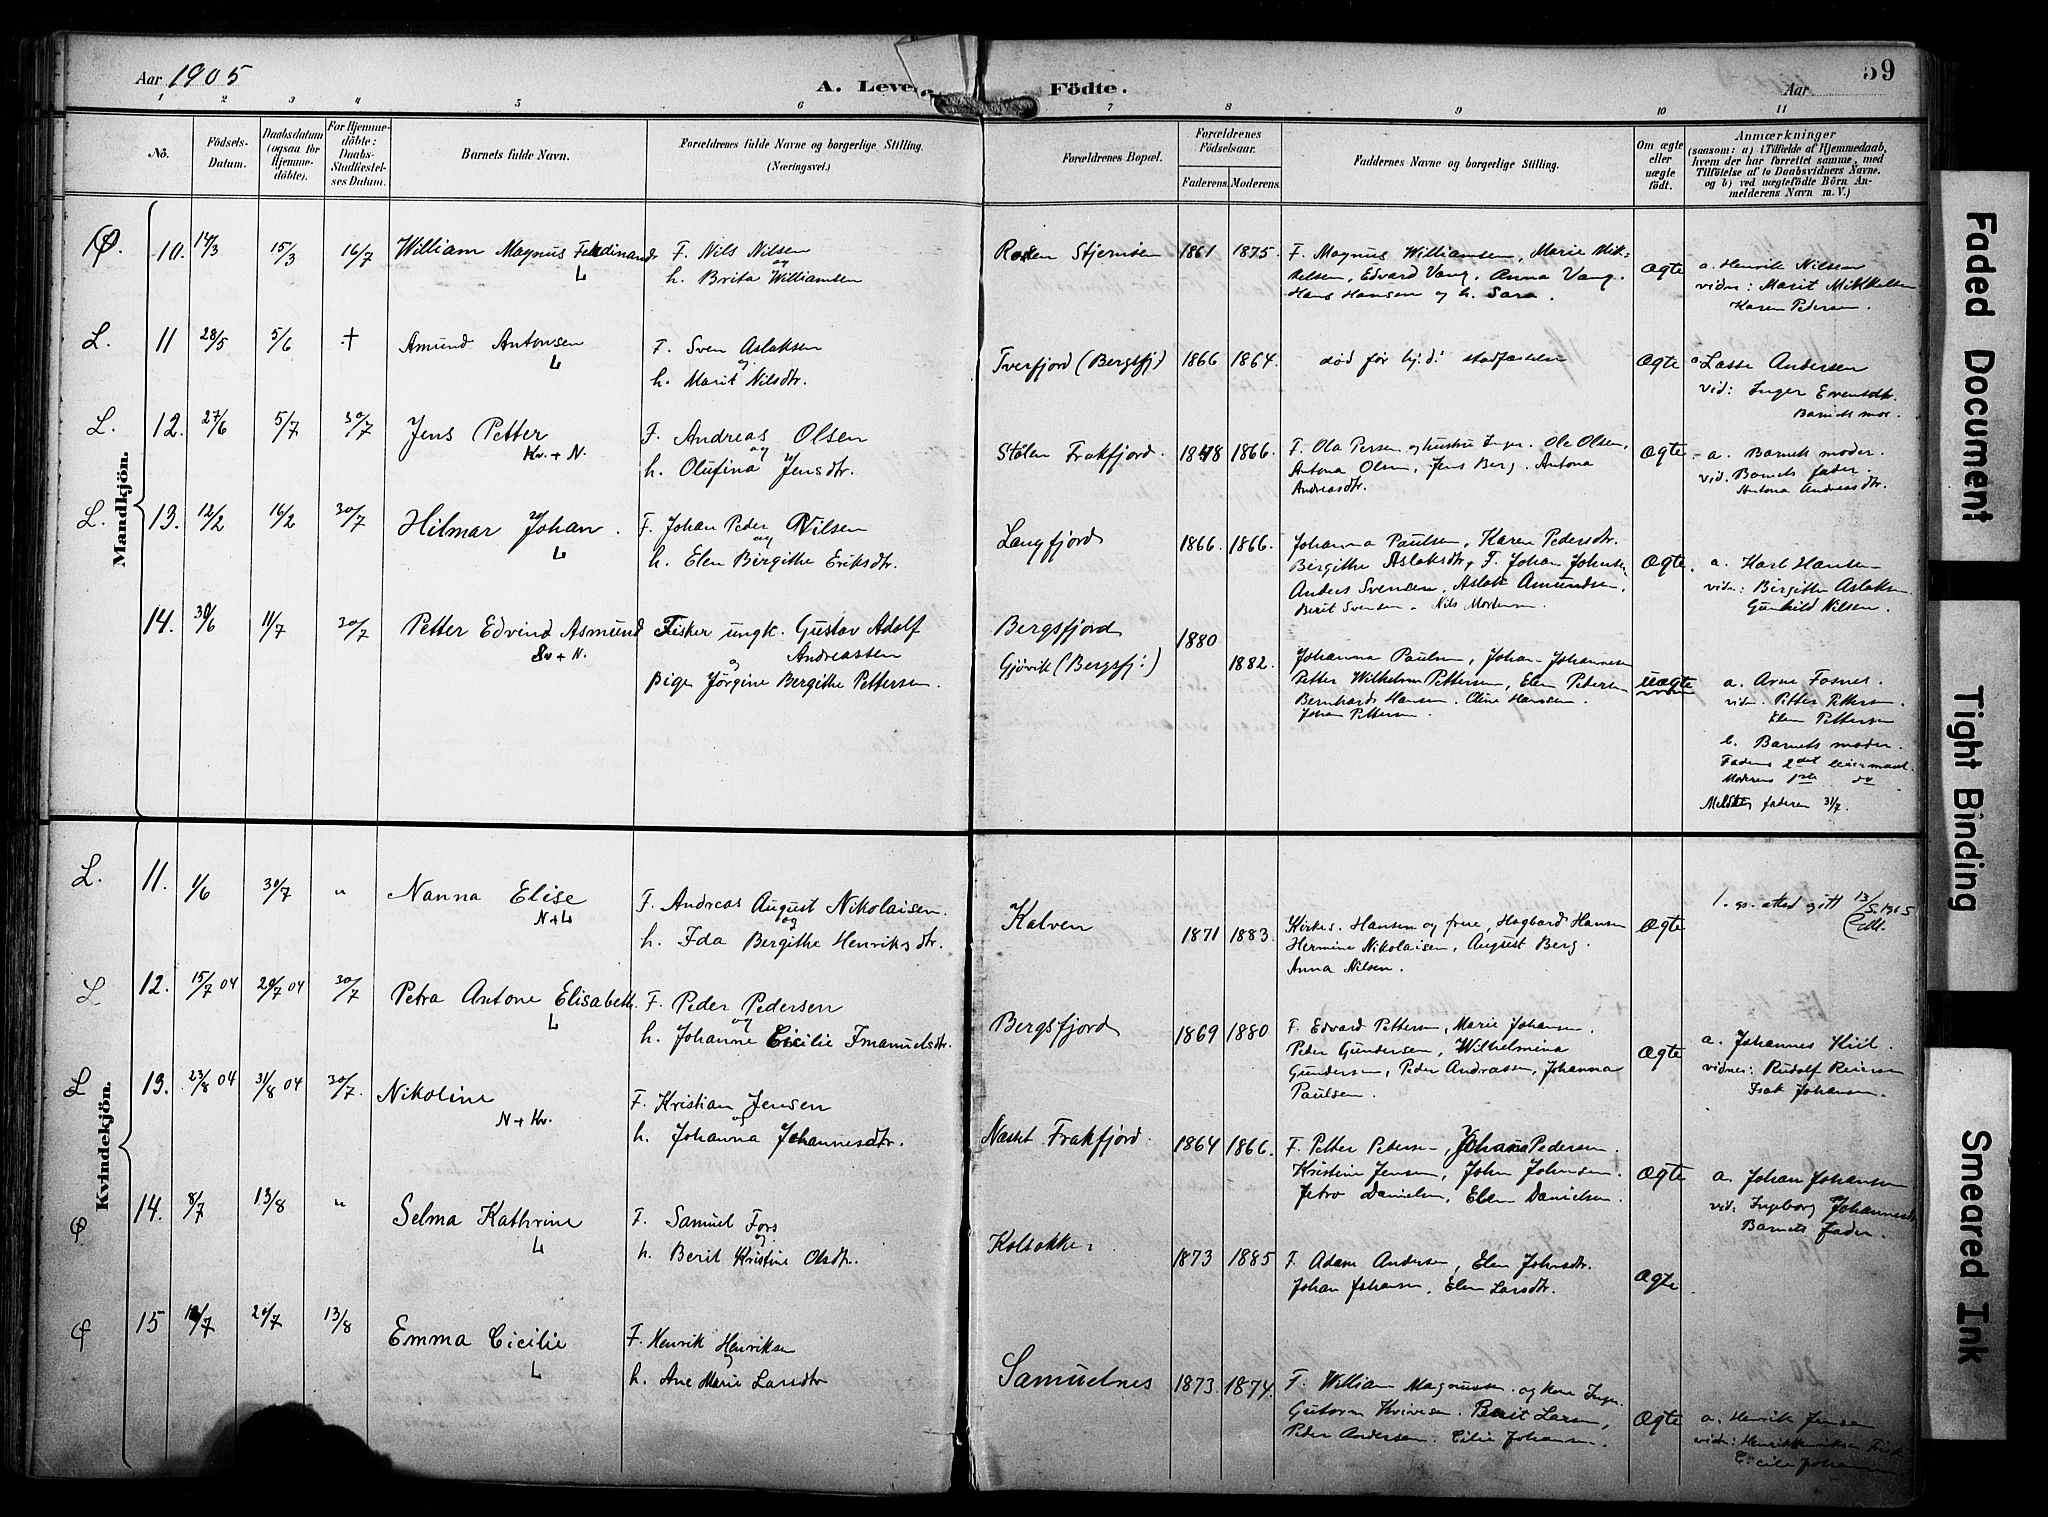 Aar 1905
A. Leve Födte.
59
Aar
1 2 3 4 5 6 7 8 9 10 11
No.
Födsels-Datum.
Daabsdatum (ogsaa for Hjemme-döbte).
For Hjemme-döbte: Daabs-Stadfæstel-ses Datum.
Barnets fulde Navn.
Forældrenes fulde Navne og borgerlige Stilling. (Næringsvei.)
Forældrenes Bopæl.
Forældrenes Födselsaar.
Faderens. Moderens.
Faddernes Navne og borgerlige Stilling.
Om ægte eller uægte födt.
Anmærkninger
(saasom: a) i Tilfælde af Hjemmedaab,
hvem der har forrettet samme, med
Tilföielse af to Daabsvidners Navne,
og b) ved uægtefödte Börn An-
melderens Navn m. V.)
Mandkjön.
10. 14/3 15/3 16/7 William Magnus Ferdinand
L
F. Nils Nilsen
og
h. Brita Williamsen
Stjernöen 1861 1875
F. Magnus Williamsen, Marie Mik-
kelsen, Edvard Vang, Anna Vang
Hans Hansen og h. Sara.
Ægte
a. Henrik Nilsen
vidn: Marit Mikkelsen
Karen Pedersen.
L. 11 28/5 5/6 + Amund Antonsen
L
F. Sven Aslaksen
og
h. Marit Nilsdtr.
Tverfjord (Bergsfj) 1866 1864.
død før hj.d. stadfæstelse
Ægte
a Lasse Andersen
vid: Inger Evensdtr.
Barnets mor.
L. 12. 27/6 5/7 30/7 Jens Petter
Kv. + N.
F. Andreas Olsen
og
h. Olufina Jensdtr.
Stølen Frakfjord. 1848 1866.
F. Ola Persen og hustru Inger. Ole Olsen,
Antona Olsen, Jens Berg. Antona
Andreasdtr.
Ægte
a. Barnets moder.
vid. Barnets fader.
Antona Andreasdtr.
L. 13. 12/2 16/2 30/7 Hilmar Johan.
L
F. Johan Peder Nilsen
og
h. Elen Birgithe Eriksdtr.
Langfjord 1866. 1866.
Johanna Paulsen, Karen Pedersdtr.
Bergithe Aslaksdtr, F. Johan Johnsen,
Anders Svendsen, Aslak Amundsen,
Berit Svendsen. Nils Mortensen.
Ægte.
a. Karl Hansen
vidn: Birgithe Aslaksen.
Gunhild Nilsen.
14. 30/6 11/7 30/7 Petter Edvind Asmund
Kv + N.
Fisker ungk. Gustav Adolf
Andreassen
og
Pige Jörgine Bergithe Pettersen.
Bergsfjord 1880
Gjövik (Bergsfj:) 1882.
Johanna Paulsen, Johan Johannesen
Petter Wilhelm Pettersen, Elen Pedersen
Bernhard Hansen. Oline Hansen.
Johan Pettersen.
uægte
a. Arne Fosnes.
vidn. Petter Pettersen.
Elen Pettersen
b. Barnets moder.
Faderens 2det leiermaal.
Moderens 1ste do.
Meldt faderen 31/7.
Kvindekjön.
L. 11. 1/6 30/7 " Nanna Elise
N+L
F. Andreas August Nikolaisen.
og
h. Ida Bergithe Henriksdtr.
Kalven 1871 1883.
Kirkes. Hansen og frue, Hagbard Hansen
Hermine Nikolaisen, August Berg.
Anna Nilsen.
Ægte
L 12. 15/7 04 20/7 04 30/7 Petra Antone Elisabeth.
L
F. Peder Pedersen
og
h. Johanne Cicilie Imanuelsdtr.
Bergsfjord 1869 1880
F. Edvard Pettersen, Marie Johansen.
Peder Gundersen, Wilhelmina
Gundersen, Peder Andrassen, Johanna
Paulsen.
Ægte
a. Johannes Kiil.
vidnes: Rudolf Reiersen
Isak Johansen.
L 13. 23/8 04 31/8 04 30/7. Nikoline
N + Kv.
F. Kristian Jensen
og
h. Johanna Johannesdtr.
Næset Frakfjord. 1864 1866.
F. Petter Petersen, Johan Pedersen.
Kristine Jensen, John Johnsen.
Jetro Danielsen, Elen Danielsen.
Ægte
a. Johan Johansen
vid: Ingeborg Johannesdtr
Barnets Fader.
14. 8/7 13/8 " Selma Kathrine
L
F. Samuel Fors
og
h. Berit Kristine Olsdtr.
1873 1885
F. Adam Andersen, Elen Johnsdtr.
Johan Johansen, Elen Larsdtr.
Ægte
15 20/7 13/8 Emma Cicilie
L
F. Henrik Henriksen
og
h. Ane Marie Larsdtr
Samuelnes 1873. 1874.
F. William Magnussen og kone Inger.
Berit Larsen,
Peder Andersen. Cilie Johansen.
Ægte
a. Henrik Jensen
vidn: Henrik Henriksen
Cecilie Johansen
Faded Document
Tight Binding
Smeared Ink